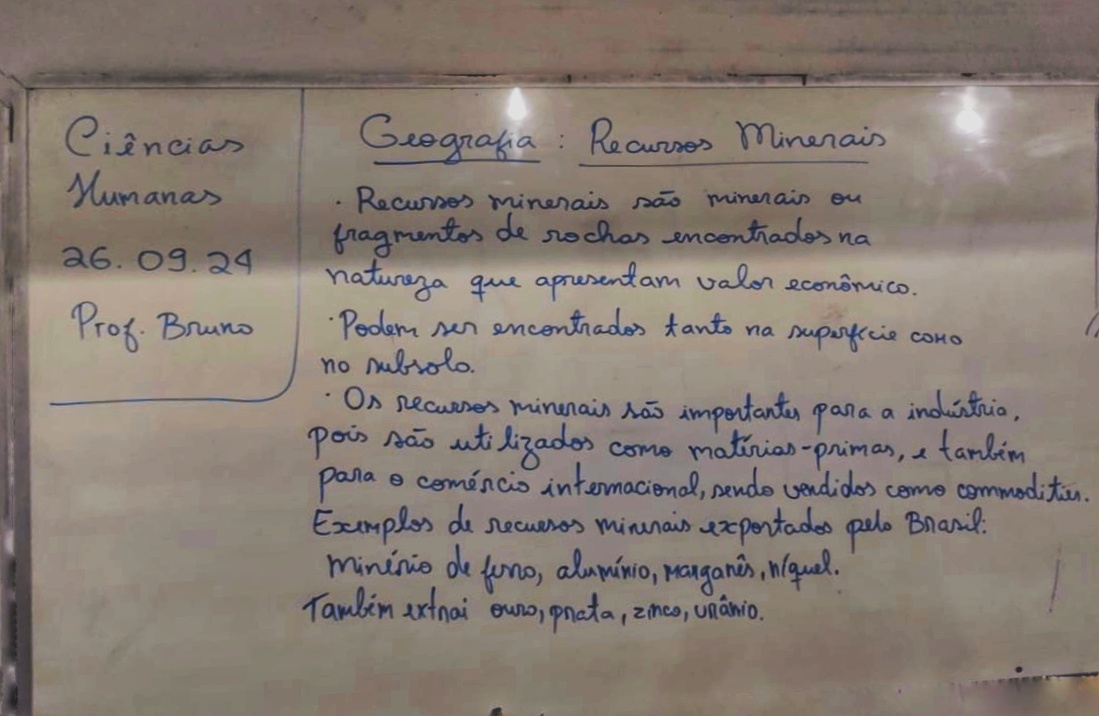 Ciências
Humanas
26.09.24
Prof. Bruno
Geografia: Recursos Minerais
· Recursos minerais são minerais ou
fragmentos de rochas encontrados na
natureza que apresentam valor econômico.
· Podem ser encontrados tanto na superfície como
no subsolo.
· Os recursos minerais são importantes para a indústria,
pois são utilizados como matérias-primas, e também
para o comércio internacional, sendo vendidos como commodities.
Exemplos de recursos minerais exportados pelo Brasil:
minério de ferro, alumínio, manganês, níquel.
Também extrai ouro, prata, zinco, urânio.